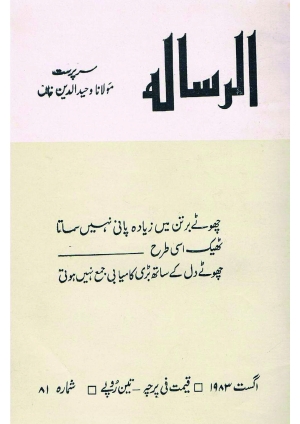 الرساله
سرپرست
مولانا وحید الدین خاں
چھوٹے برتن میں زیادہ پانی نہیں سماتا
ٹھیک اسی طرح ــــــــــــ
چھوٹے دل کے ساتھ بڑی کامیابی جمع نہیں ہوتی
اگست ۱۹۸۳ □ قیمت فی پرچہ ــ تین روپے □ شمارہ ۸۱